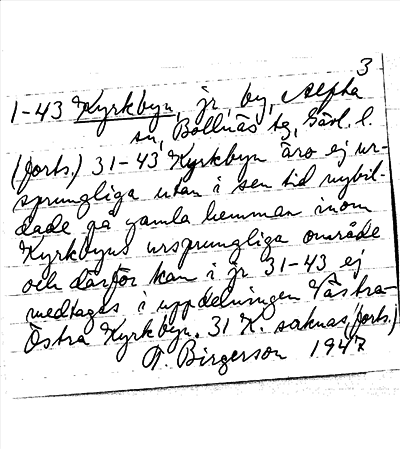 3
1-43 Kyrkbyn, jr, by, Alfta
sn, Bollnäs tg, Gävl. l.
(forts.) 31-43 Kyrkbyn äro ej ur-
sprungliga utan i sen tid nybil-
dade på gamla hemman inom
Kyrkbyns ursprungliga område
och därför kan i jr 31-43 ej
medtagas i uppdelningen Västra-
Östra Kyrkbyn. 31 K. saknas, (forts.)
Birgerson 1947